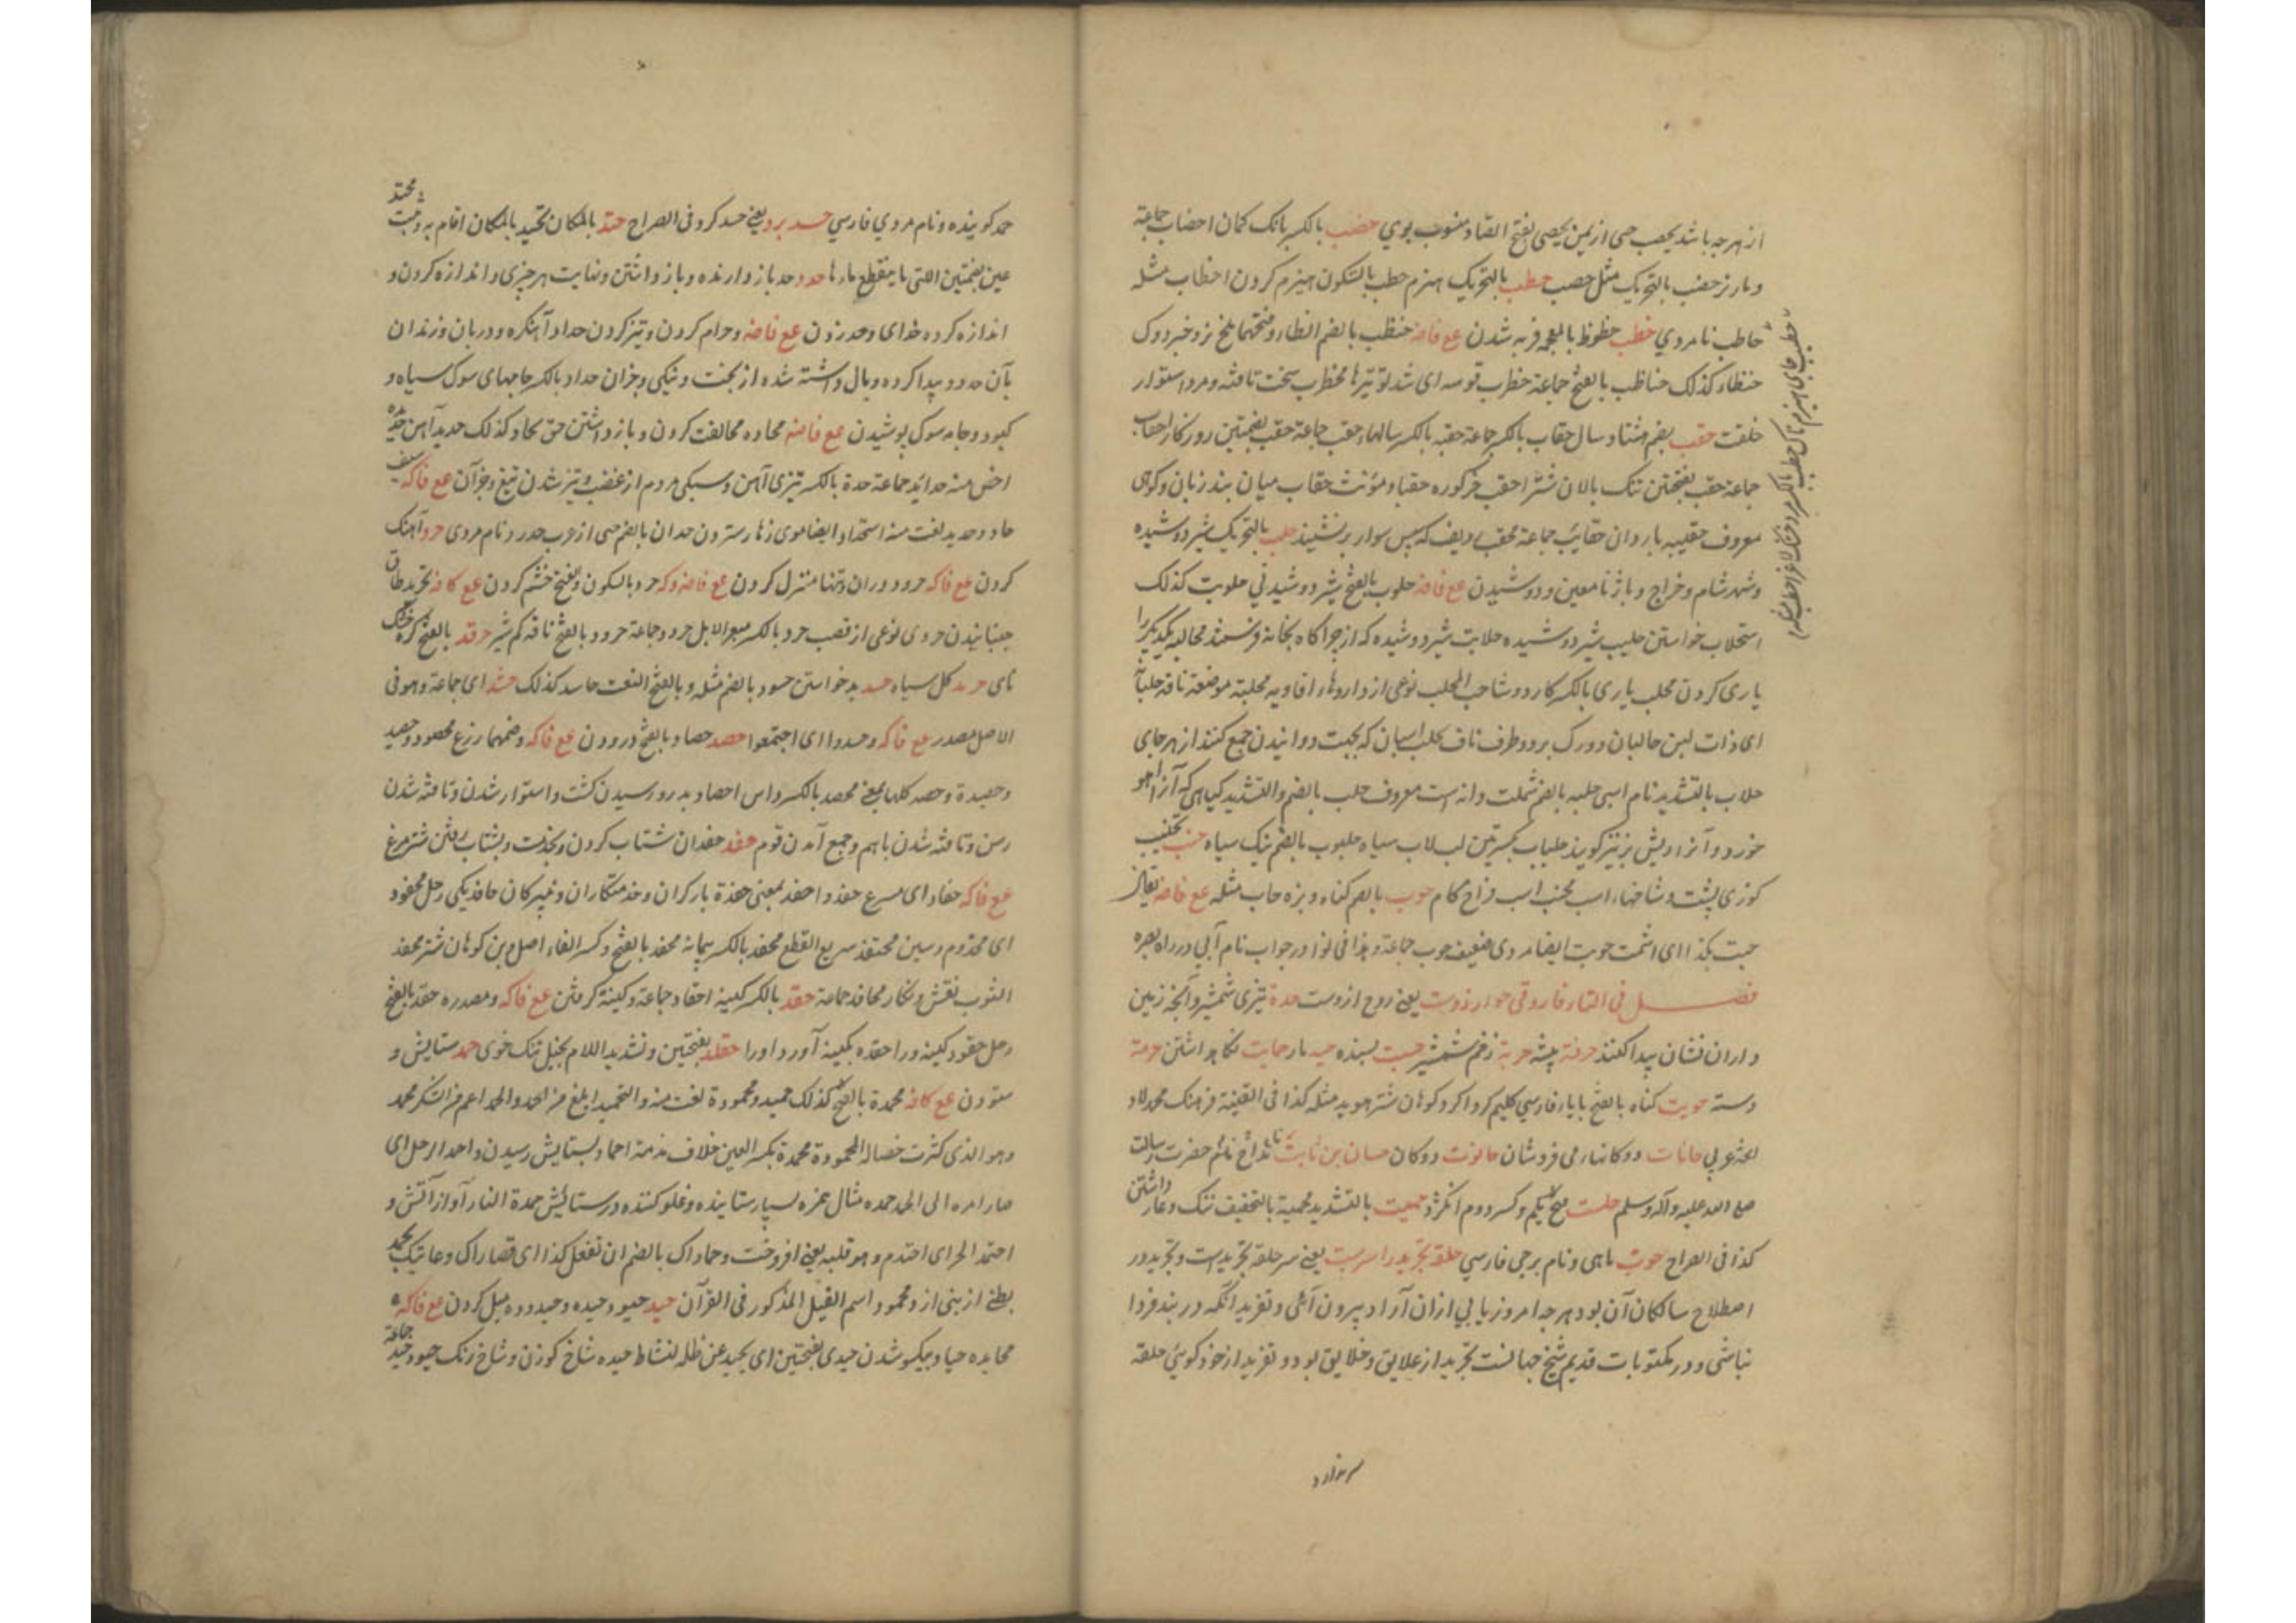 از هر چه باشد یحصب حی از یمن یحصبی بفتح الصاد منسوب بوی حضب بالکسر بانک کمان احضاب جماعة
و مار نر حضب بالتحریک مثل حصب حطب بالتحریک هیزم حطب بالسکون هیزم کردن احطاب مثله
حاطب نام مردی حظب حظوظ بالمعجمه فربه شدن مع فاضه حنظب بالضم الظاء و فتحها ملخ نر و خبزدوک
حنظاء کذلک حناظب بالفتح جماعة حظرب قوسه ای شد توتیرها محظرب سخت تافته و مرد استوار
خلقت حقب بضم هشتاد سال حقاب بالکسر جماعة حقبه بالکسر سالها حقب جماعة حقب بضمتین روزکار احقاب
جماعة حقب بفتحتین تنک بالان شتر احقب خرکوره حقباء مؤنث حقاب میان بند زنان و کوهی
معروف حقیبه باردان حقائب جماعة محقب ردیف که پس سوار برنشیند حلب بالتحریک شیر دوشیده
و شهر شام و خراج و باژ نامعین و دوشیدن مع فاضه حلوب بالفتح شیر دوشیدنی حلوبت کذلک
استحلاب خواستن حلیب شیر دوشیده حلابت شیر دوشیده که از چراکاه بخانه فرستند محالبه یکدیکر را
یاری کردن محلب یاری بالکسر کاردوشا حب المحلب نوعی از داروها و افاویه محلبة موضعة ناقة حلباة
ای ذات لبن حالبان دو رک بر دو طرف ناف حلب اسبان که بجهت دوانیدن جمع کنند از هر جای
حلاب بالتشدید نام اسبی حلبه بالضم شملت و انه است معروف حلب بالضم و التشدید کیاهی که آنرا آهو
خورد و آنرا ریش بز نیز کویند حلباب بکسرتین لبلاب سیاه حلبوب بالضم نیک سیاه حنب تحنیب
کوزی پشت و شاخها اسب محنب اسب فراخ کام حوب بالضم کناه و بزه حاب مثله مع فاضه یقال
حبت بکذا ای اثمت حوبت ایضا مردی ضعیف حوب جماعة و هذا فی نوادر حواب نام آبی در راه بصره
فصل فی التاء فاروقی حوار زوت یعنی روح از وست حدة تیزی شمشیر و آنچه زمین
داران نشان پیدا کنند حرفة پیشه حربة زخم شمشیر حسبت بسنده حیه مار حمایت نکاه داشتن حزمة
دسته حویت کناه بالفتح بایاء فارسی کلیم کردا کرد کوهان شتر هوید مثله کذا فی القنیة فرهنک محمد لاد
لغة عربی حانات دوکانها می فروشان حانوت دوکان حسان بن ثابت نام مداح حضرت رسالت
صلی الله علیه و آله و سلم حلتیت بفتح یکم و کسر دوم انکژد حمیت بالتشدید محمیة بالتخفیف ننک و عار داشتن
کذا فی الصراح حوت ماهی و نام برجی فارسی حلقه تجرید را سربت یعنی سر حلقه تجریدست و تجرید در
اصطلاح سالکان آن بود هر چه امروز یابی ازان آزاد بیرون آئی و تفرید آنکه در بند فردا
نباشی و در مکتوبات قدیم شیخ جهانست تجرید از علایق و خلایق بود و تفرید از خود کوئی حلقه
حطب
حمد کوینده و نام مردی فارسی حسد برد یعنی حسد کرد و فی الصراح حتد بالمکان یحتد بالمکان اقام به و ثبت محتد
عین بضمتین التی لا ینقطع ماءها حدد حد باز دارنده و باز داشتن و نهایت هر چیزی و اندازه کردن و
اندازه کرده خدای و حد زدن مع فاضه و حرام کردن و تیز کردن حداد آهنکر و دربان و زندان
بآن حدود پیدا کرده و بال داشته شده از بخت و نیکی و جزان حداد بالکسر جامهای سوک سیاه و
کبود و جامه سوک پوشیدن مع فاضه محاده مخالفت کردن و بازداشتن حق حداد کذلک حدید آهن حدیده
اخص منه حدائد جماعة حدة بالکسر تیزی آهن و سبکی مردم از غضب و تیز شدن تیغ و جزآن مع فاکه سیف
حاد و حدید لغت منه استحداد ایضا موی زهار ستردن حدان بالضم حی از عرب حدرد نام مردی حرد آهنک
کردن مع فاکه حرود دوران و تنها منزل کردن مع فاضه و که حرد بالسکون و الفتح خشم کردن مع کافه تحرید طاق
جنبانیدن حردی نوعی از قصب حرد بالکسر مبعر الابل حرود جماعة حرود بالفتح ناقه کم شیر حرقد بالفتح کره خشک
نای حرمد کل سیاه حسد بد خواستن حسود بالضم مثله و بالفتح النعت حاسد کذلک حشد ای جماعة و هو فی
الاصل مصدر مع فاکه و حشدوا ای اجتمعوا حصد حصاد بالفتح درودن مع فاکه و ضمها زرع محصود و حصید
و حصیدة و حصد کلها بمعنی محصد بالکسر داس احصاد بدرو رسیدن کشت و استوار شدن و تافته شدن
رسن و تافته شدن باهم و جمع آمدن قوم حفد حفدان شتاب کردن و بخدمت و بشتاب رفتن شترمرغ
مع فاکه حفاد ای مسرع حفد و احفد بمعنی حفدة یارکران و خدمتکاران و نبیرکان حافد یکی رجل محفود
ای مخدوم و سیف محتفد سریع القطع محفد بالکسر پیمانه محفد بالفتح و کسر الفاء اصل و بن کوهان شتر محفد
الثوب نقش و نکار محافد جماعة حقد بالکسر کینه احقاد جماعة و کینه کرفتن مع فاکه و مصدره حقد بالفتح
رجل حقود کینه ور احقده بکینه آورد او را حقلد بفتحتین و تشدید اللام بخیل تنک خوی حمد ستایش و
ستودن مع کافه محمدة بالفتح کذلک حمید و محمودة لغت منه و التحمید ابلغ من الحمد و الحمد اعم من الشکر محمد
و هو الذی کثرت خصاله المحمودة محمدة بکسر العین خلاف مذمة احماد بستایش رسیدن و احمد الرجل ای
صار امره الی الحمد حمده مثال همزه بسیار ستاینده و غلو کننده در ستایش حمدة النار آواز آتش و
احتمد الحر ای احتدم و هو قلبه یعنی افروخت و حماداک بالضم ان تفعل کذا ای قصاراک و غایتک یحمد
بطنی از بنی ازد محمود اسم الفیل المذکور فی القرآن حید حیود و حیده و حیدوده میل کردن مع فاکه
محایده حیاد یکسو شدن حیدی بفتحتین ای یحید عن ظله لنشاط حیده شاخ کوزن و شاخ زنک حیود و حید جماعة